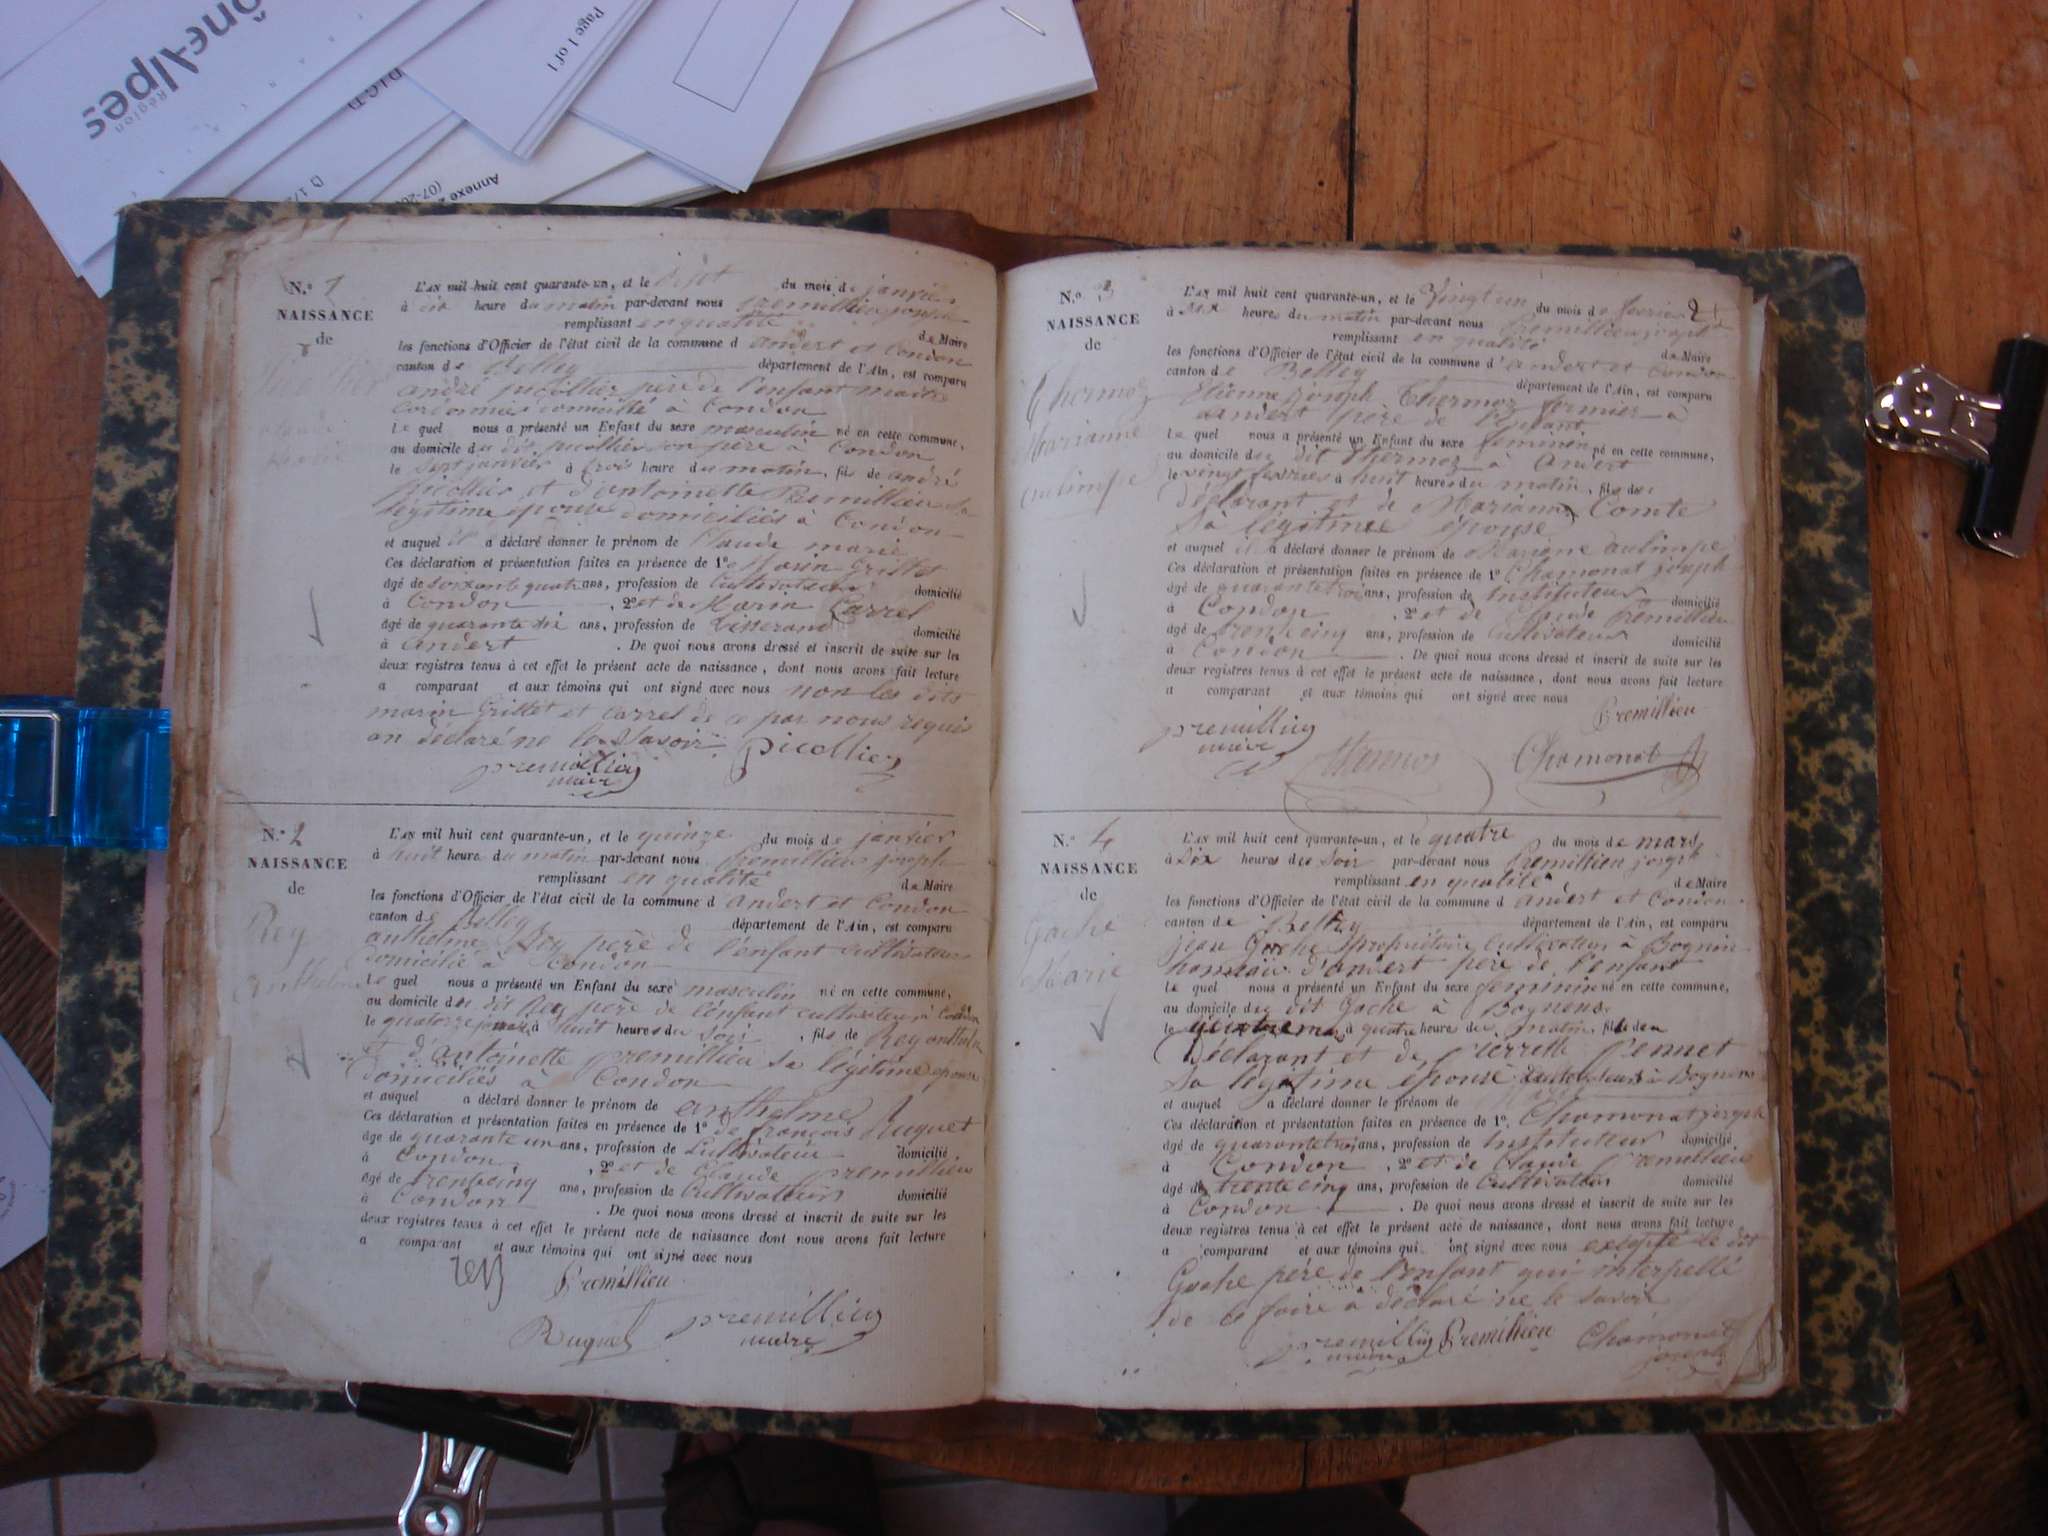 Région
ône-Alpes
Page 1 of 1
Annexe 2
N.° 1
NAISSANCE
de
L'AN mil huit cent quarante-un, et le sept du mois de janvier
à dix heure du matin par-devant nous premillieu joseph
remplissant en qualité de Maire
les fonctions d'Officier de l'état civil de la commune d andert et Condon
canton de Belley département de l'Ain, est comparu
andré picollier père de l'enfant maître
Cordonnier domicilié à Condon
Le quel nous a présenté un Enfant du sexe masculin né en cette commune,
au domicile du dit picollier son père à Condon
le sept janvier à trois heure du matin, fils de andré
picollier et d'antoinette Premillieu sa
légitime épouse domiciliés à Condon
et auquel il a déclaré donner le prénom de Claude marie
Ces déclaration et présentation faites en présence de 1° Marin Grillet
âgé de soixante quatre ans, profession de Cultivateur domicilié
à Condon, 2° et de Marin Carrel
âgé de quarante six ans, profession de Tisserand domicilié
à andert. De quoi nous avons dressé et inscrit de suite sur les
deux registres tenus à cet effet le présent acte de naissance, dont nous avons fait lecture
a comparant et aux témoins qui ont signé avec nous non les dits
marin Grillet et Carrel de ce par nous requis
on déclaré ne le Savoir. picollier
premillieu
maire
N.° 2
NAISSANCE
de
Rey
anthelme
L'AN mil huit cent quarante-un, et le quinze du mois de janvier
à huit heure du matin par-devant nous Premillieu joseph
remplissant en qualité de Maire
les fonctions d'Officier de l'état civil de la commune d andert et Condon
canton de Belley département de l'Ain, est comparu
anthelme Rey père de l'enfant cultivateur
domicilié à Condon
Le quel nous a présenté un Enfant du sexe masculin né en cette commune,
au domicile du dit Rey père de l'enfant cultivateur à Condon
le quatorze à huit heures du soir, fils de Rey anthelme
et d'antoinette premillieu sa légitime épouse
domiciliés à Condon
et auquel a déclaré donner le prénom de anthelme
Ces déclaration et présentation faites en présence de 1° de françois Ruquet
âgé de quarante un ans, profession de Cultivateur domicilié
à Condon, 2° et de Claude premillieu
âgé de trentecinq ans, profession de Cultivateur domicilié
à Condon. De quoi nous avons dressé et inscrit de suite sur les
deux registres tenus à cet effet le présent acte de naissance dont nous avons fait lecture
a comparant et aux témoins qui ont signé avec nous
rey Premillieu
Ruquet premillieu
maire
N.° 3
NAISSANCE
de
Thermoz
Marianne
aulimpe
L'AN mil huit cent quarante-un, et le Vingt un du mois de fevrier 2
à six heures du matin par-devant nous Premillieu joseph
remplissant en qualité de Maire
les fonctions d'Officier de l'état civil de la commune d'andert et Condon
canton de Belley département de l'Ain, est comparu
Etienne joseph Thermoz fermier à
andert père de l'enfant
Le quel nous a présenté un Enfant du sexe feminin né en cette commune,
au domicile du dit Thermoz à Andert
le vingt fevrier à huit heures du matin, fille du
déclarant et de Marianne Comte
sa légitime épouse
et auquel il a déclaré donner le prénom de Marianne aulimpe
Ces déclaration et présentation faites en présence de 1° Chamonat joseph
âgé de quarantetrois ans, profession de Instituteur domicilié
à Condon, 2° et de Claude Premillieu
âgé de trentecinq ans, profession de Cultivateur domicilié
à Condon. De quoi nous avons dressé et inscrit de suite sur les
deux registres tenus à cet effet le présent acte de naissance, dont nous avons fait lecture
a comparant et aux témoins qui ont signé avec nous
Premillieu
premillieu
maire
Chamonat
N.° 4
NAISSANCE
de
Gache
Marie
L'AN mil huit cent quarante-un, et le quatre du mois de mars
à six heures du soir par-devant nous Premillieu joseph
remplissant en qualité de Maire
les fonctions d'Officier de l'état civil de la commune d andert et Condon
canton de Belley département de l'Ain, est comparu
jean Gache propriétaire Cultivateur à Bognin
hameau d'andert père de l'enfant
Le quel nous a présenté un Enfant du sexe feminin né en cette commune,
au domicile du dit Gache à Bognens
le à quatre heure du matin, fille du
déclarant et de Pierrette
sa légitime épouse à Bognens
et auquel a déclaré donner le prénom de
Ces déclaration et présentation faites en présence de 1° Chamonat joseph
âgé de quarantetrois ans, profession de Instituteur domicilié
à Condon, 2° et de Claude Premillieu
âgé de trentecinq ans, profession de Cultivateur domicilié
à Condon. De quoi nous avons dressé et inscrit de suite sur les
deux registres tenus à cet effet le présent acte de naissance, dont nous avons fait lecture
a comparant et aux témoins qui ont signé avec nous excepté le dit
Gache père de l'enfant qui interpellé
de ce faire a déclaré ne le savoir
premillieu Premillieu Chamonat
maire joseph